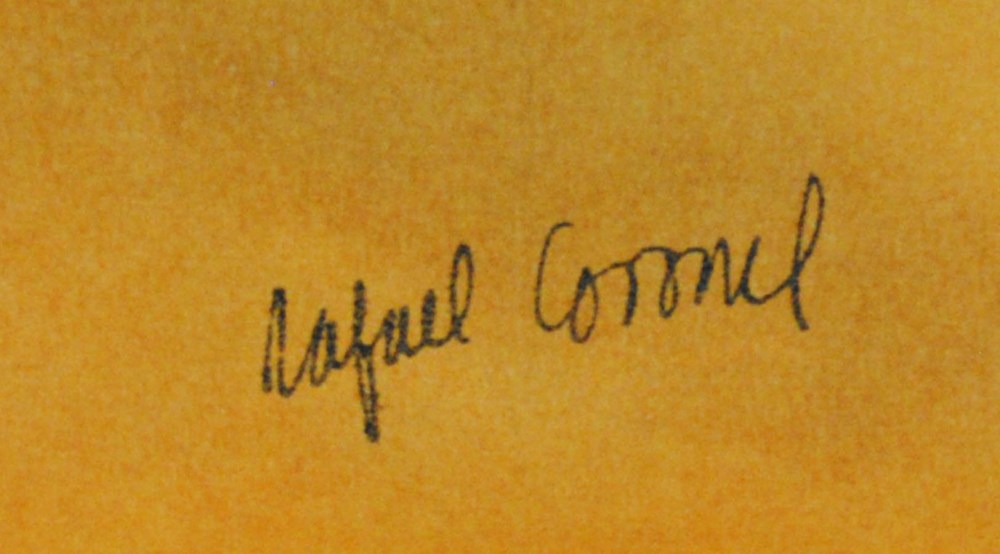 Rafael Coronel